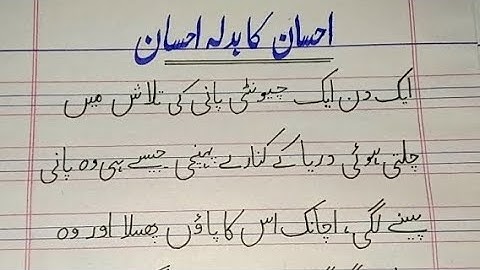 احسان کا بدلہ احسان
ایک دن ایک چیونٹی پانی کی تلاش میں
چلتی ہوئی دریا کے کنارے پہنچی جیسے ہی وہ پانی
پینے لگی، اچانک اس کا پاؤں پھسلا اور وہ